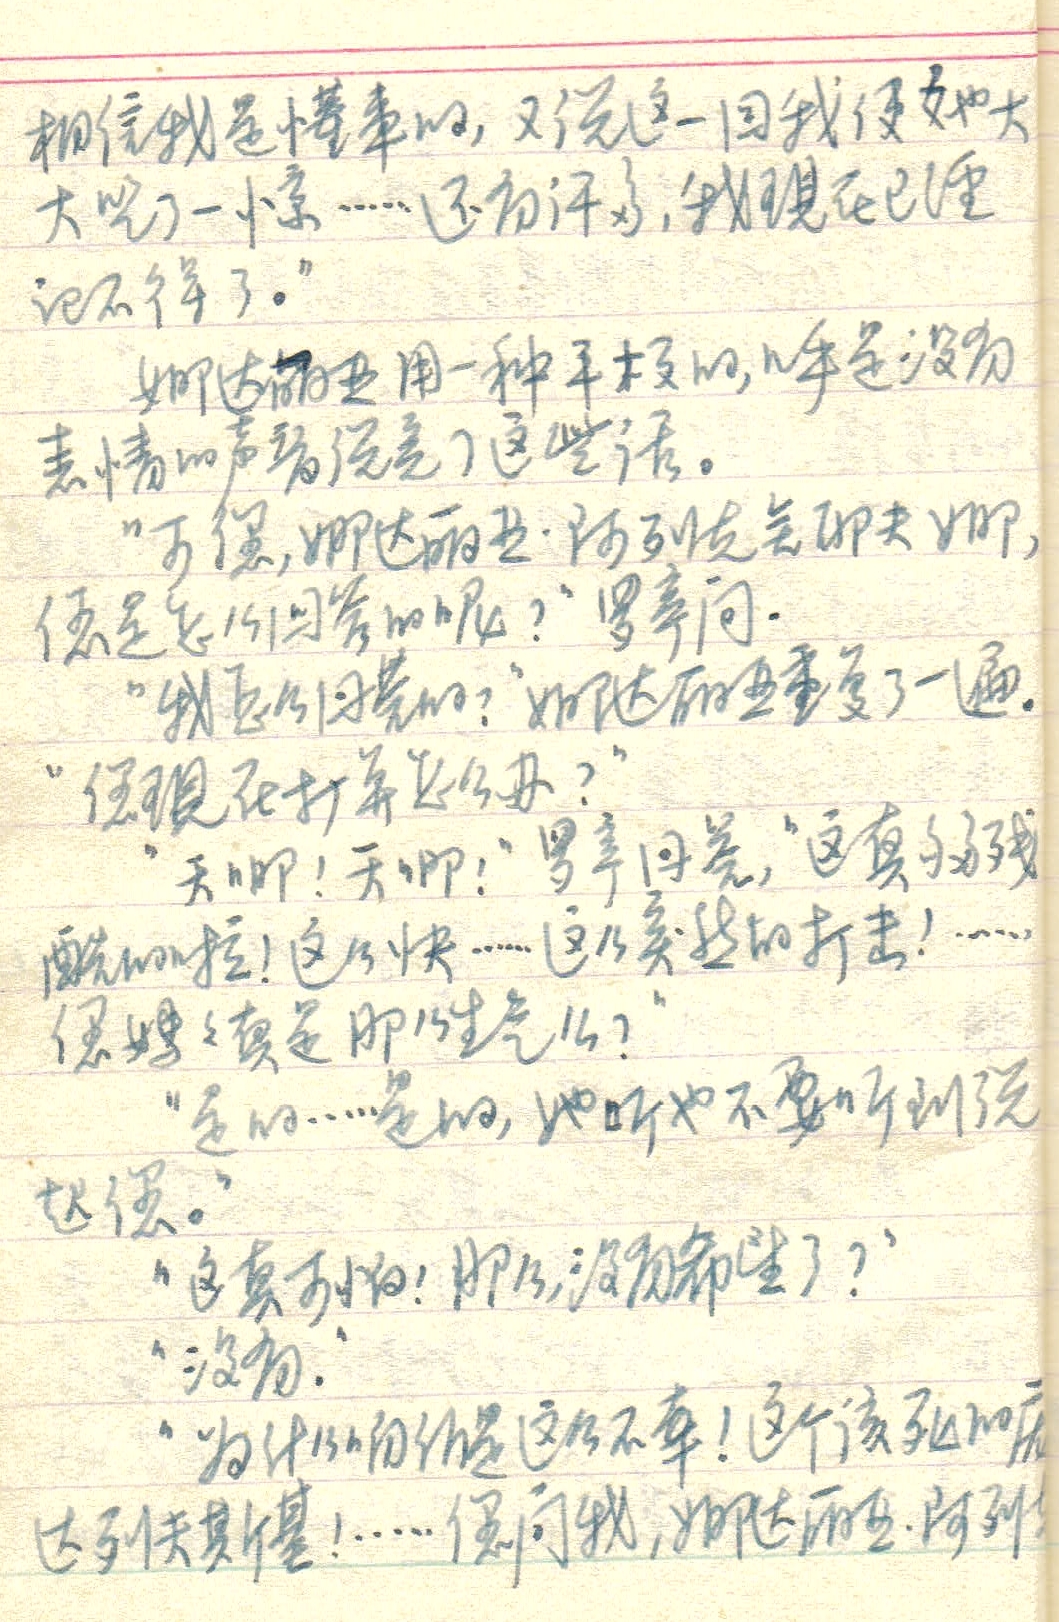 相信我是懂事的，又说这一回我使她大
大吃了一惊……还有许多，我现在已经
记不得了。”
娜达丽亚用一种平板的，几乎是没有
表情的声音说完了这些话。
“可您，娜达丽亚·阿列克谢耶夫娜，
您是怎么回答的呢？”罗亭问.
“我怎么回答的？”娜达丽亚重复了一遍.
“您现在打算怎么办？”
“天哪！天哪！”罗亭回答，“这真够残
酷的啦！这么快……这么突然的打击！……
您妈妈真是那么生气么？”
“是的……是的，她听也不要听到说
起您。”
“这真可怕！那么，没有希望了？”
“没有.”
“为什么咱们是这么不幸！这个该死的
达列夫斯基！……您问我，娜达丽亚·阿列